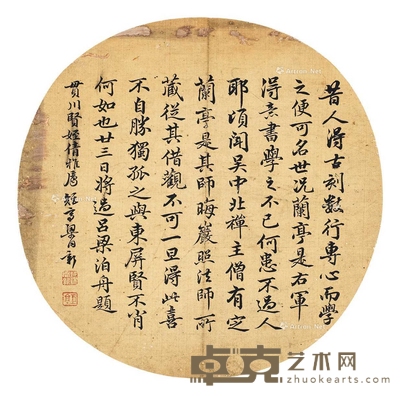 昔人得古刻數行專心而學
之便可名世况蘭亭是右軍
得意書學之不已何患不過人
耶頃聞吳中北禪主僧有定
蘭亭是其師晦巖照法師所
藏從其借觀不可一旦得此喜
不自勝獨孤之與東屏賢不肖
何如也廿三日將過呂梁泊舟題
貫川賢姪倩雅屬
卓克艺术网
zhuokearts.com